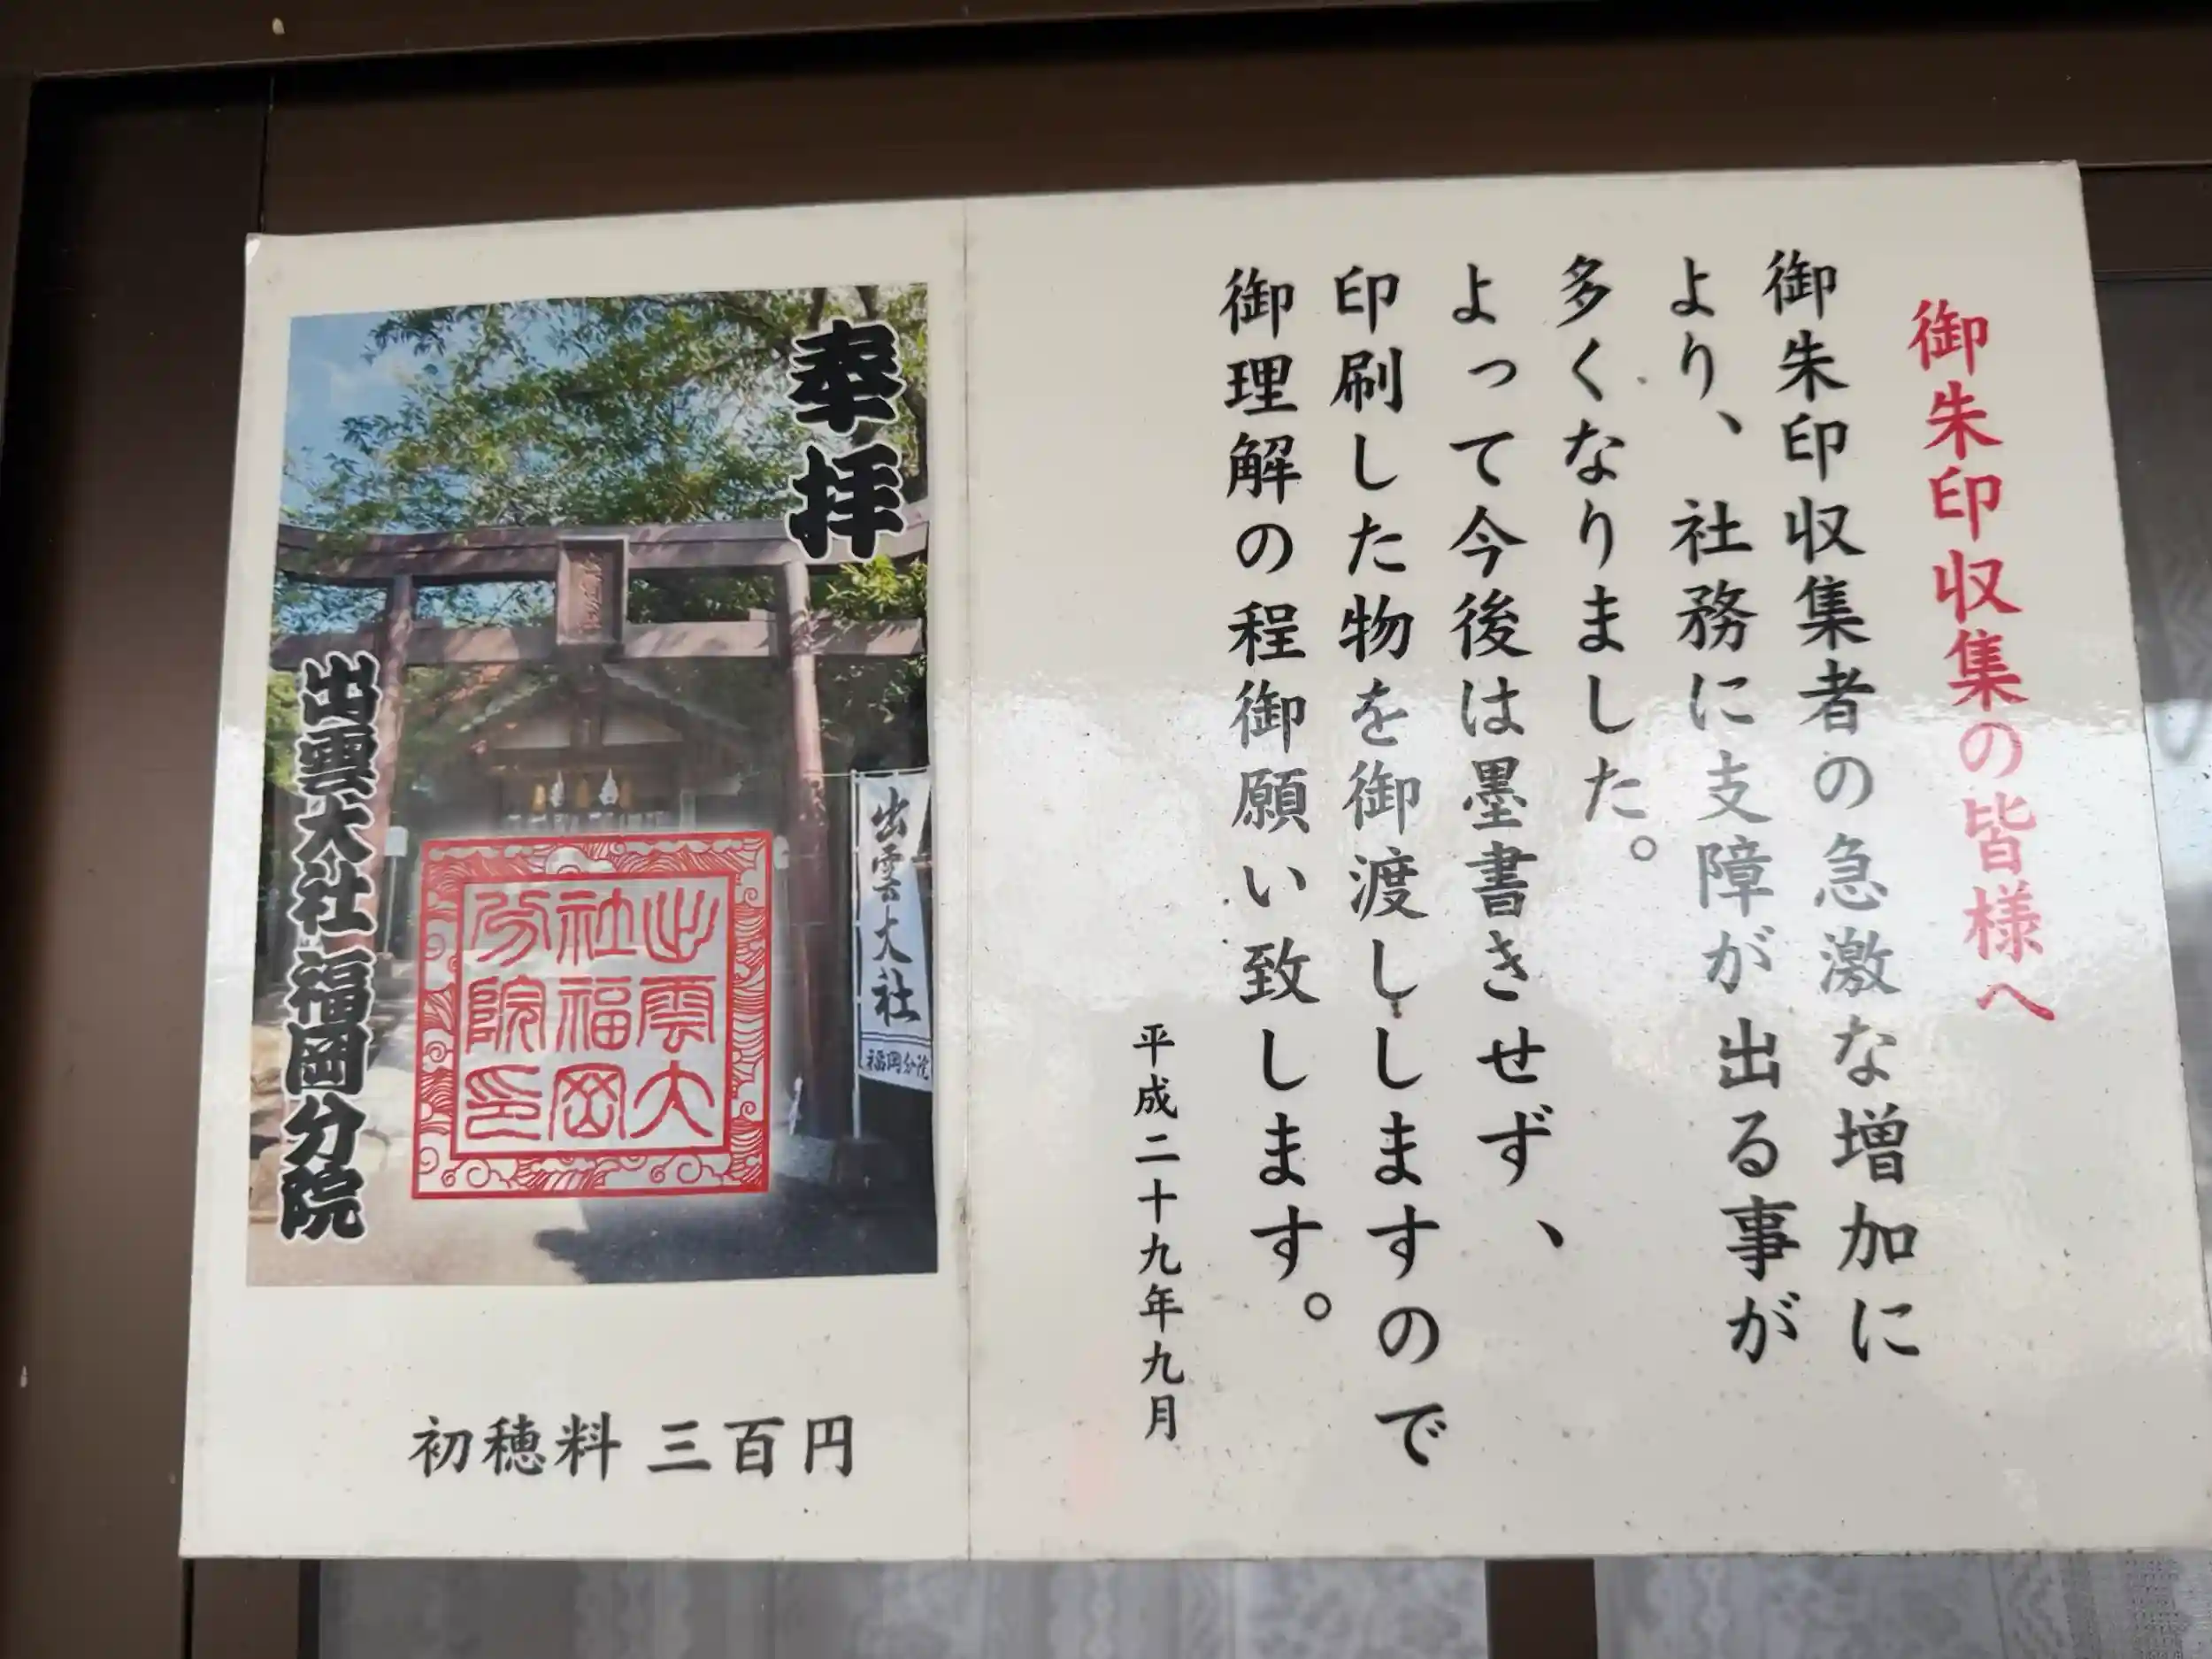 御朱印収集の皆様へ
御朱印収集者の急激な増加に
より、社務に支障が出る事が
多くなりました。
よって今後は墨書きせず、
印刷した物を御渡ししますので
御理解の程御願い致します。
平成二十九年九月
奉拝
出雲大社
福岡分院
出雲大
社福岡
分院印
出雲大社福岡分院
初穂料 三百円